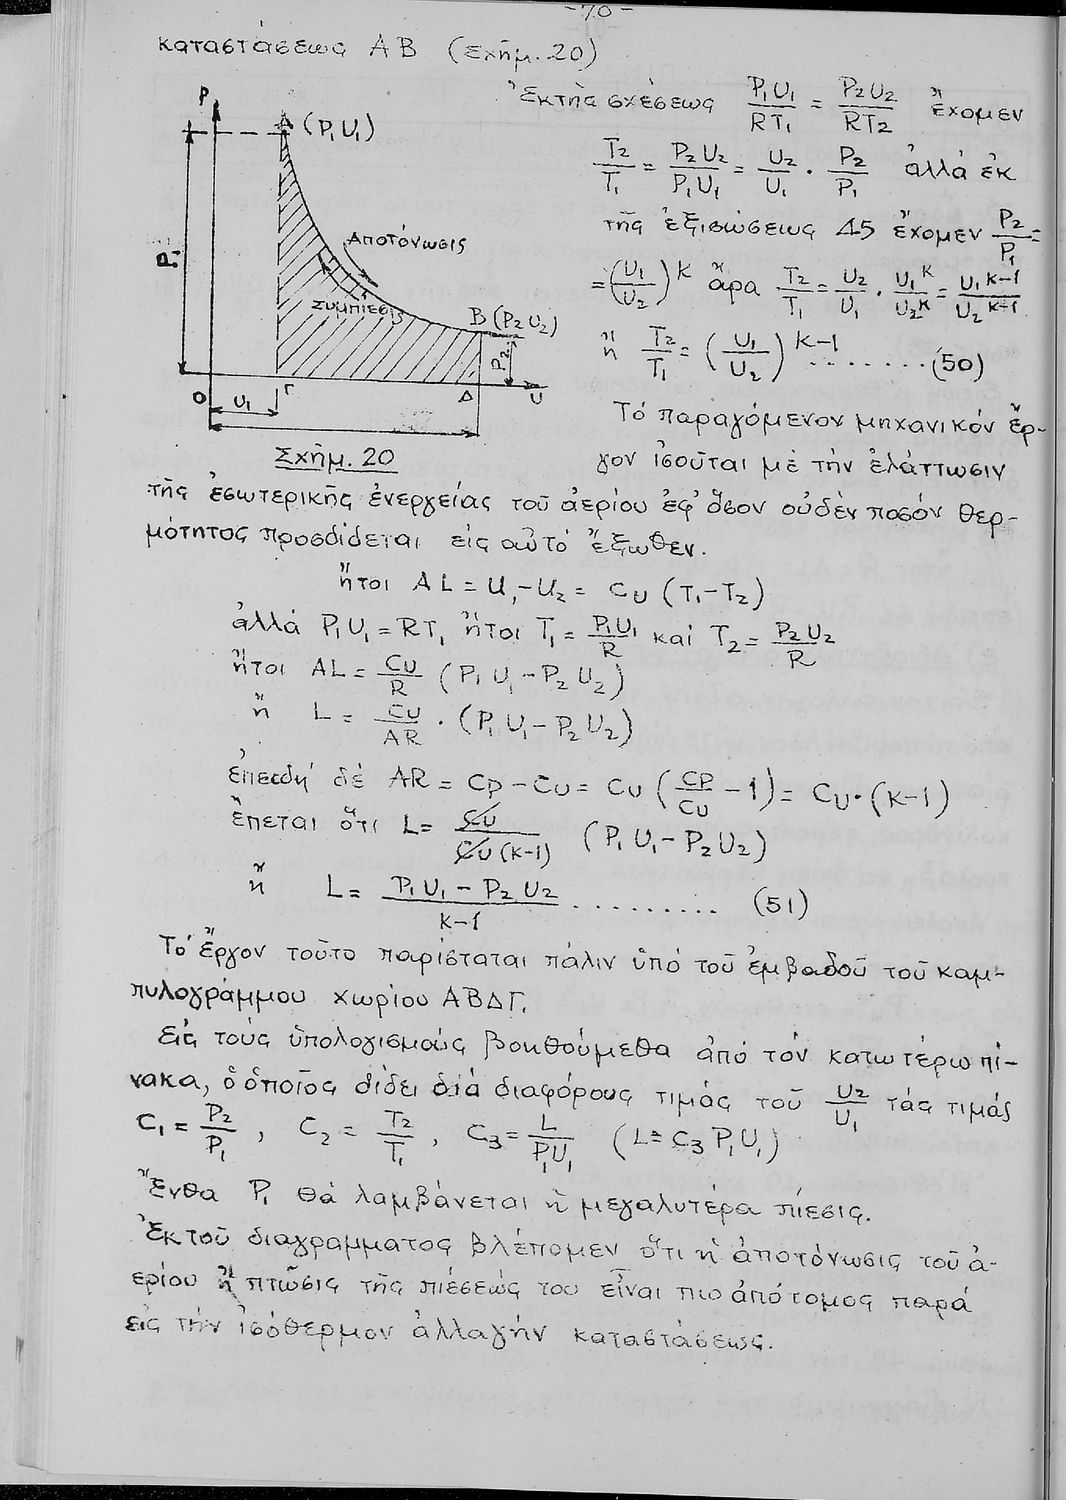 -70-
καταστάσεως ΑΒ (Σχῆμ. 20)
Ἐκ τῆς σχέσεως P₁U₁/RT₁ = P₂U₂/RT₂ ἔχομεν
T₂/T₁ = P₂U₂/P₁U₁ = U₂/U₁ · P₂/P₁ ἀλλά ἐκ
τῆς ἐξισώσεως 45 ἔχομεν P₂/P₁ =
= (U₁/U₂)^K ἄρα T₂/T₁ = U₂/U₁ · U₁^K/U₂^K = U₁^K-1/U₂^K-1
ἤ T₂/T₁ = (U₁/U₂)^K-1 ........(50)
P
A (P₁U₁)
Ἀποτόνωσις
Συμπίεσις
B (P₂U₂)
P₁
P₂
O
U₁
Γ
Δ
U
Σχῆμ. 20
Τό παραγόμενον μηχανικόν ἔρ-
γον ἰσοῦται μέ τήν ἐλάττωσιν
τῆς ἐσωτερικῆς ἐνεργείας τοῦ ἀερίου ἐφ' ὅσον οὐδέν ποσόν θερ-
μότητος προσδίδεται εἰς αὐτό ἔξωθεν.
ἤτοι AL = U₁-U₂ = CU (T₁-T₂)
ἀλλά P₁U₁ = RT₁ ἤτοι T₁ = P₁U₁/R καί T₂ = P₂U₂/R
ἤτοι AL = CU/R (P₁U₁-P₂U₂)
ἤ L = CU/AR · (P₁U₁-P₂U₂)
ἐπειδή δέ AR = CP-CU = CU (CP/CU - 1) = CU·(K-1)
ἕπεται ὅτι L = CU/CU(K-1) (P₁U₁-P₂U₂)
ἤ L = P₁U₁-P₂U₂/K-1 .......... (51)
Τό ἔργον τοῦτο παρίσταται πάλιν ὑπό τοῦ ἐμβαδοῦ τοῦ καμ-
πυλογράμμου χωρίου ΑΒΔΓ.
Εἰς τούς ὑπολογισμούς βοηθούμεθα ἀπό τόν κατωτέρω πί-
νακα, ὁ ὁποῖος δίδει διά διαφόρους τιμάς τοῦ U₂/U₁ τάς τιμάς
C₁ = P₂/P₁, C₂ = T₂/T₁, C₃ = L/P₁U₁ (L = C₃ P₁U₁)
Ἔνθα P₁ θά λαμβάνεται ἡ μεγαλυτέρα πίεσις.
Ἐκ τοῦ διαγράμματος βλέπομεν ὅτι ἡ ἀποτόνωσις τοῦ ἀ-
ερίου ἤ πτῶσις τῆς πιέσεώς του εἶναι πιο ἀπότομος παρά
εἰς τήν ἰσόθερμον ἀλλαγήν καταστάσεως.